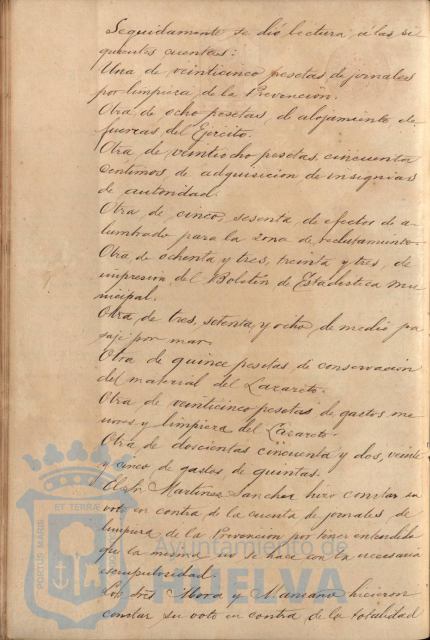 Seguidamente se dió lectura á las si
guientes cuentas:
Una de veinticinco pesetas de jornales
por limpieza de la Prevencion.
Otra de ocho pesetas, de alojamiento de
fuerzas del Ejército.
Otra de veintiocho pesetas, cincuenta
centimos, de adquisicion de insignias
de autoridad.
Otra de cinco, sesenta, de efectos de a-
lumbrado para la zona de reclutamiento.
Otra de ochenta y tres, treinta y tres, de
impresion del Boletin de Estadistica mu
nicipal.
Otra de tres, setenta y ocho, de medio pa
saje por mar.
Otra de quince pesetas, de conservacion
del material del Lazareto.
Otra de veinticinco pesetas de gastos me
nores y limpieza del Lazareto.
Otra de doscientas cincuenta y dos, veinte
y cinco, de gastos de quintas.
El Sr. Martinez Sanchez hizo constar su
voto en contra de la cuenta de jornales, de
limpieza de la Prevencion por tener entendido
que la misma no se hace con la necesaria
escrupulosidad.
Los Sres Mora y Manzano hicieron
constar su voto en contra de la totalidad
PORTUS MARIS ET TERRAE
Ayuntamiento de
HUELVA